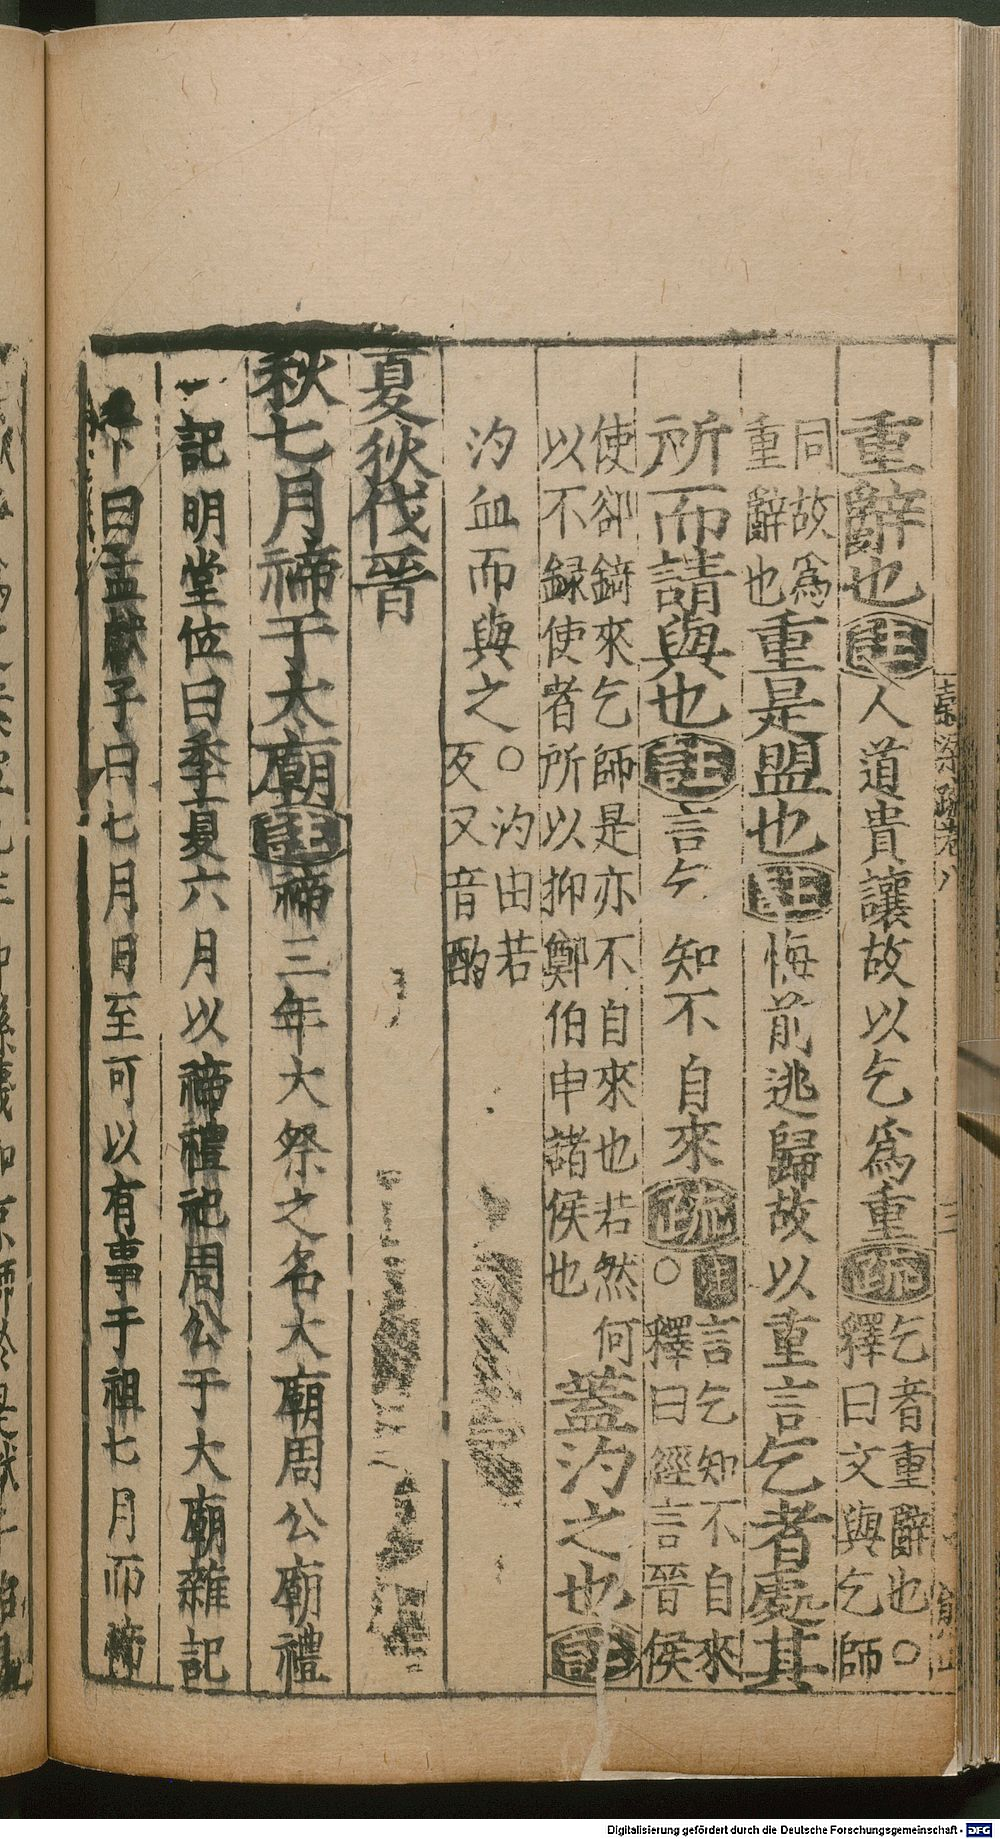 重辭也註人道貴讓故以乞爲重疏乞者重辭也○
釋曰文與乞師
同故爲
重辭也重是盟也註悔前逃歸故以重言乞者處其
所而請與也註言乞知不自來疏註言乞知不自來
○釋曰經言晉侯
使郤錡來乞師是亦不自來也若然何
以不録使者所以抑鄭伯申諸侯也蓋汋之也註
汋血而與之○汋由若
反又音酌
夏狄伐晉
秋七月禘于太廟註禘三年大祭之名大廟周公廟禮
記明堂位曰季夏六月以禘禮祀周公于大廟雜記
下曰孟獻子曰七月日至可以有事于祖七月而禘
穀梁疏卷八
三
Digitalisierung gefördert durch die Deutsche Forschungsgemeinschaft - DFG